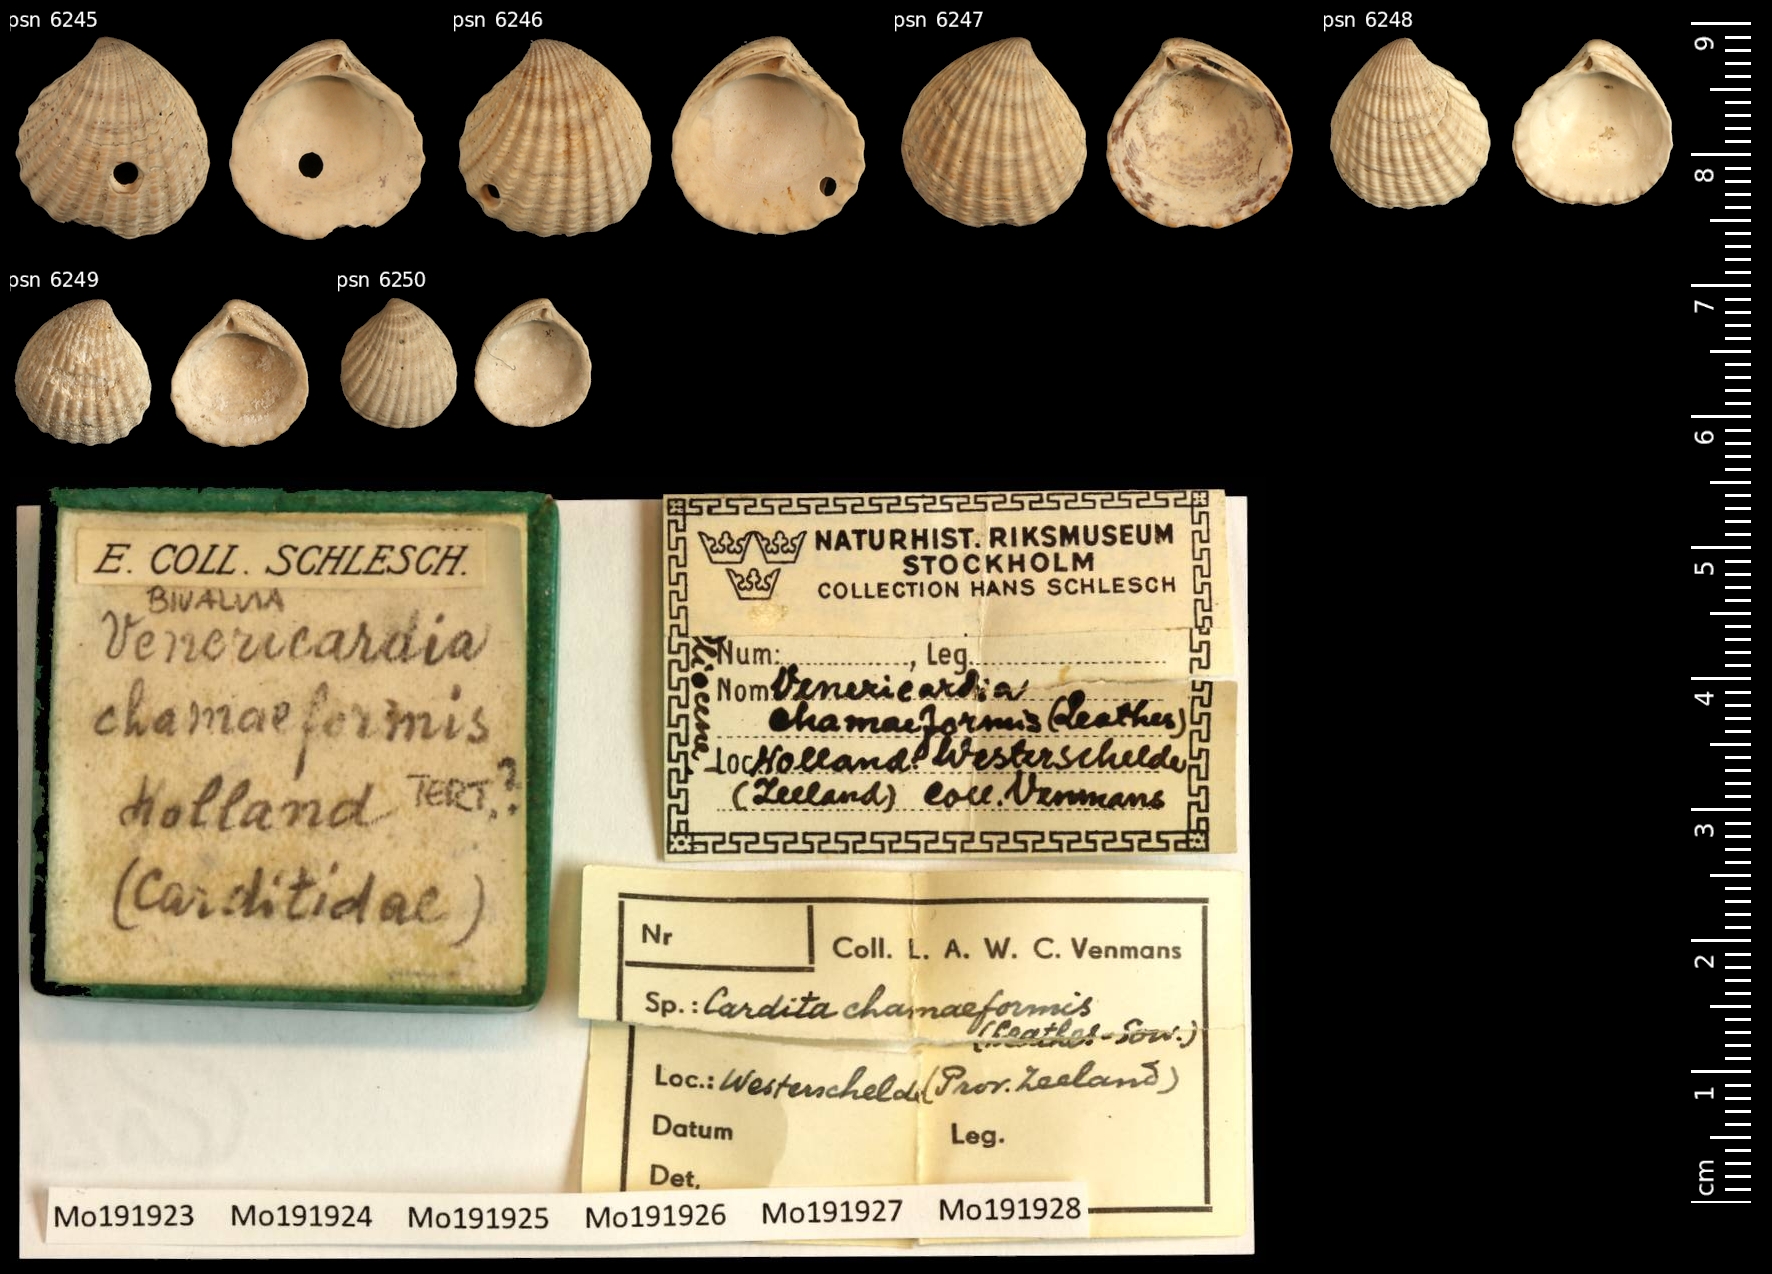 psn 6245
psn 6246
psn 6247
psn 6248
psn 6249
psn 6250
E. COLL. SCHLESCH.
BIVALVIA
Venericardia
chamaeformis
Holland TERT.?
(Carditidae)
NATURHIST. RIKSMUSEUM
STOCKHOLM
COLLECTION HANS SCHLESCH
Pliocene
Num: , Leg.
Nom Venericardia
chamaeformis (Leathes)
Loc Holland: Westerschelde
(Zeeland) Coll. Venmans
Nr
Coll. L. A. W. C. Venmans
Sp.: Cardita chamaeformis
(Leathes-Sow.)
Loc.: Westerschelde (Prov. Zeeland)
Datum Leg.
Det.
Mo191923 Mo191924 Mo191925 Mo191926 Mo191927 Mo191928
9
8
7
6
5
4
3
2
1
cm